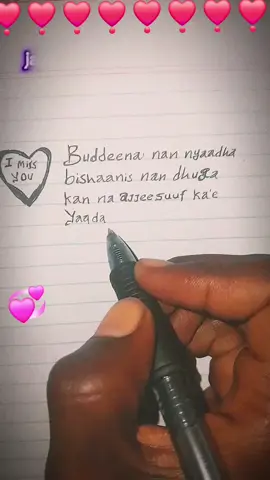 ja
I miss
you
Buddeena nan nyaadha
bishaanis nan dhuga
kan na ajjeesuuf ka'e
Yaada